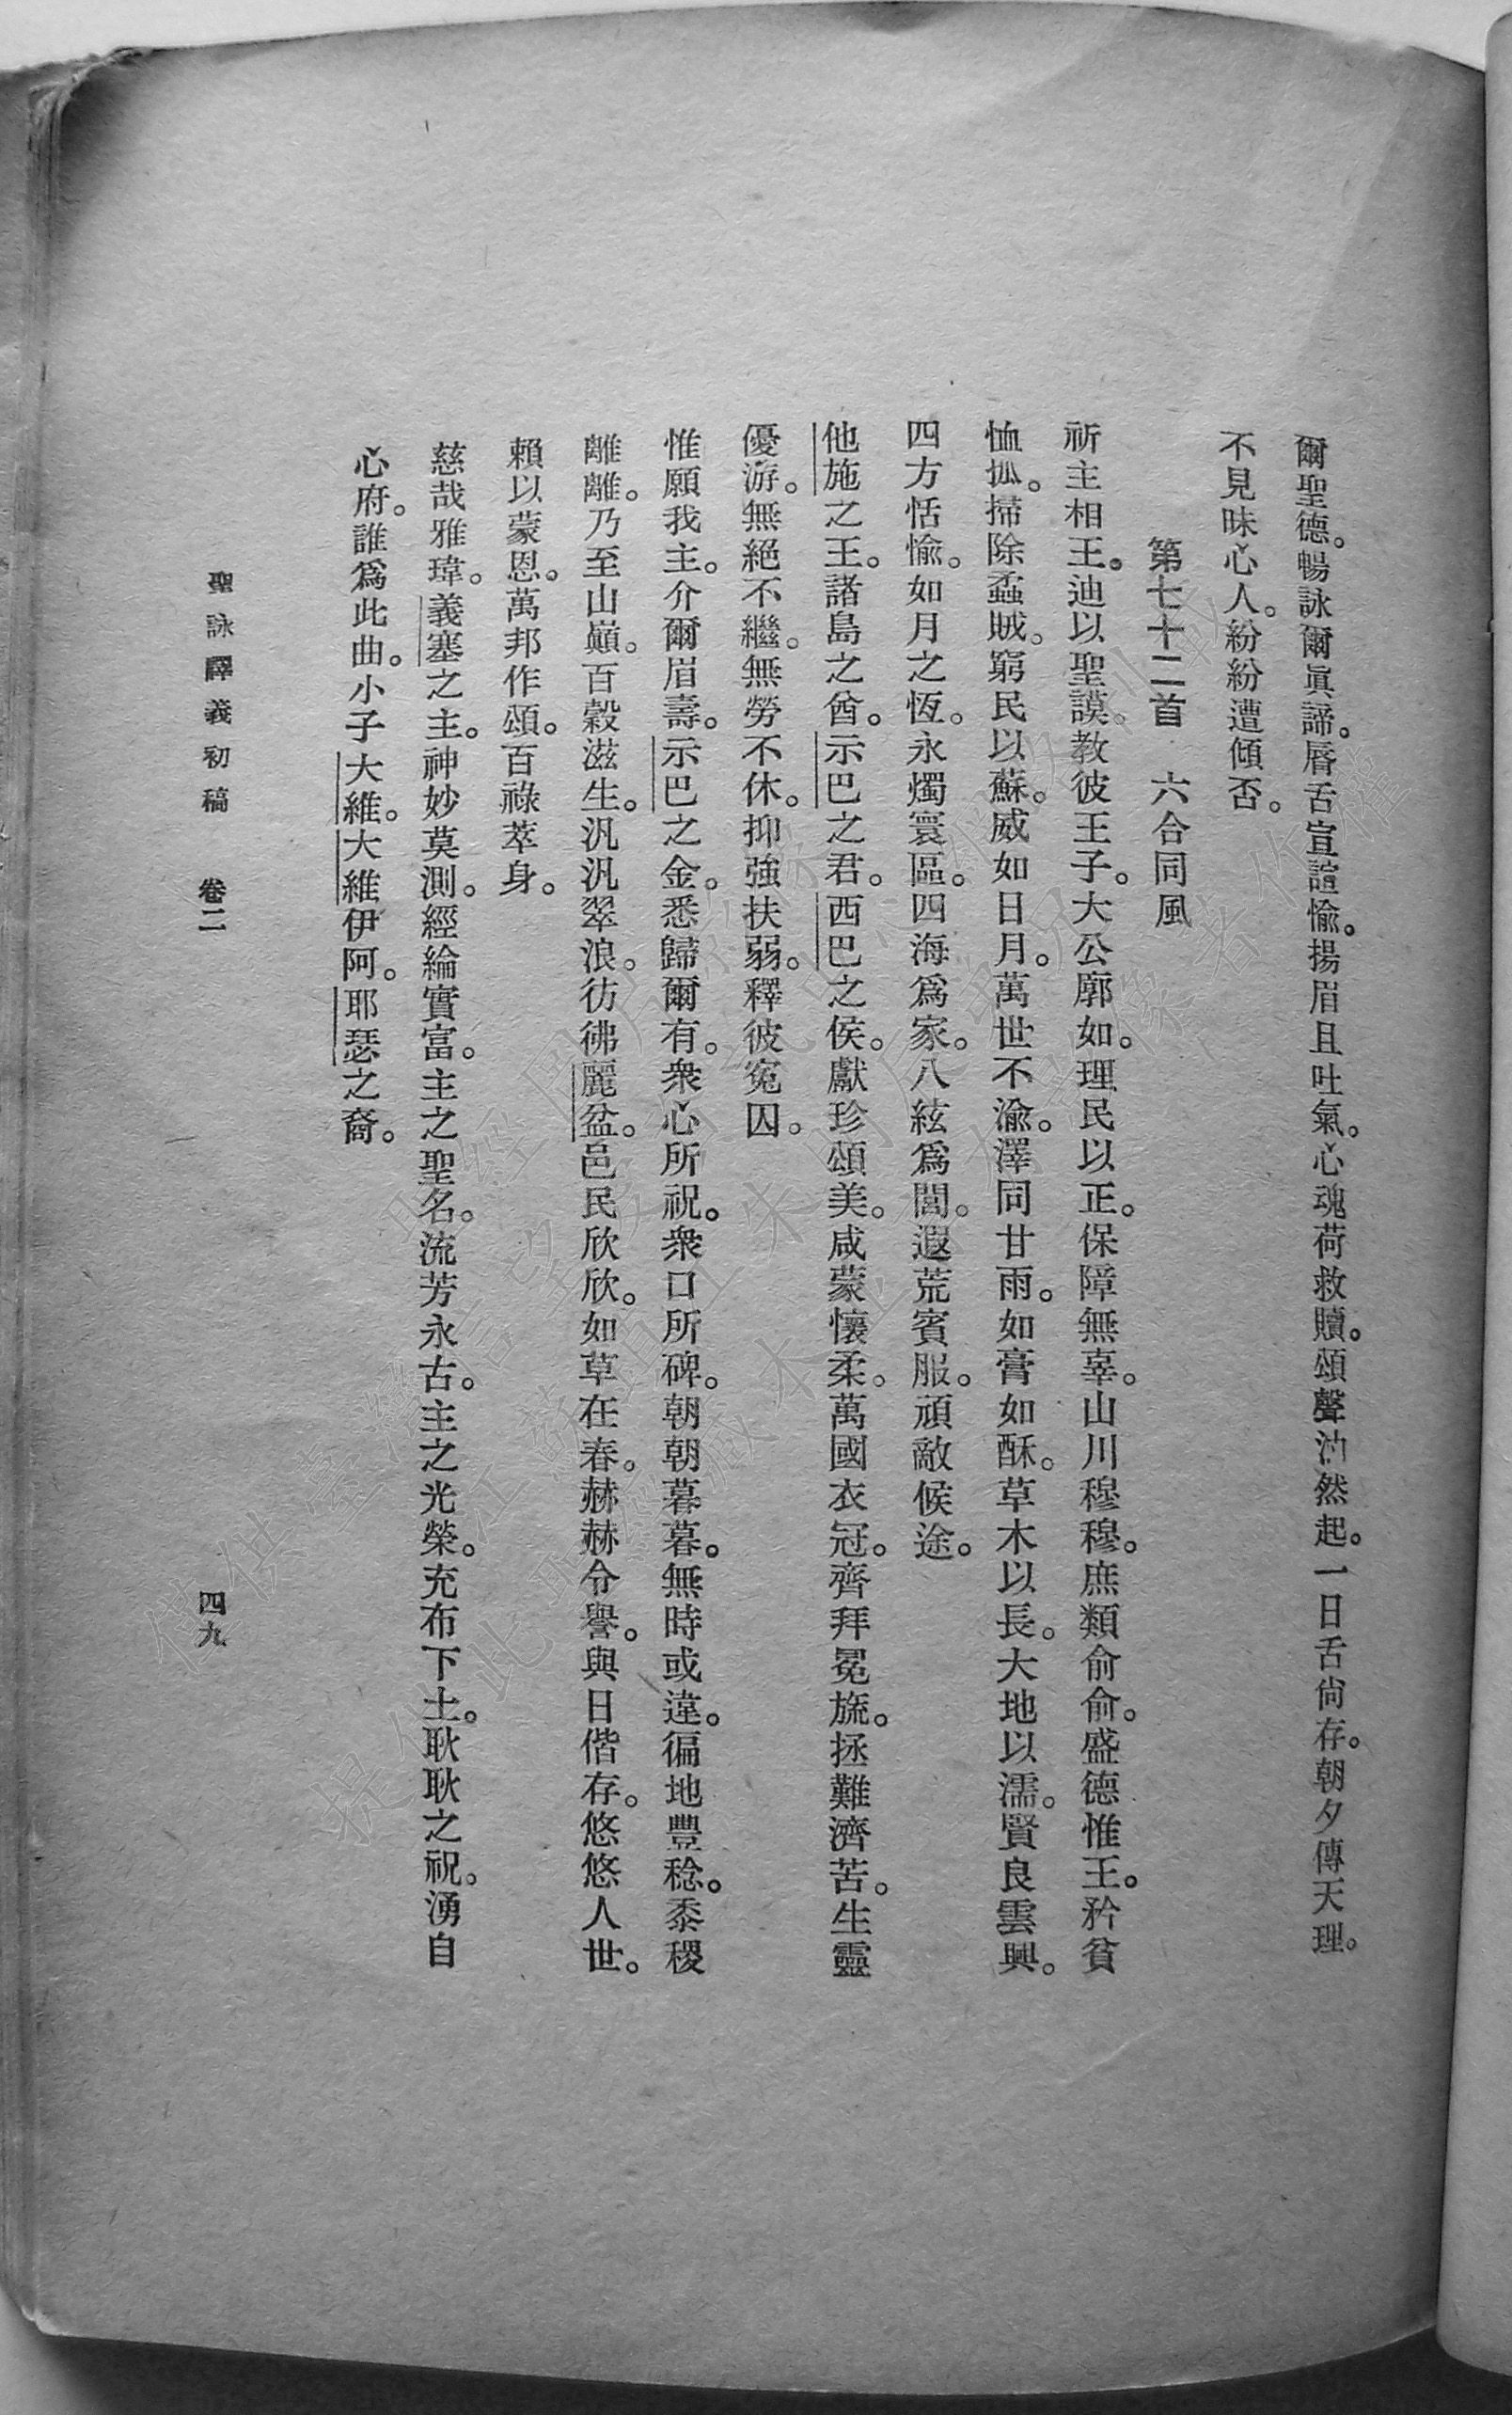 爾聖德。暢詠爾眞諦。唇舌宣諠愉。揚眉且吐氣。心魂荷救贖。頌聲油然起。一日舌尙存。朝夕傳天理。
不見昧心人。紛紛遭傾否。
第七十二首　六合同風
祈主相王。迪以聖謨。教彼王子。大公廓如。理民以正。保障無辜。山川穆穆。庶類俞俞。盛德惟王。矜貧
恤孤。掃除蟊賊。窮民以蘇。威如日月。萬世不渝。澤同甘雨。如膏如酥。草木以長。大地以濡。賢良雲興。
四方恬愉。如月之恆。永燭寰區。四海爲家。八紘爲閭。遐荒賓服。頑敵候途。
他施之王。諸島之酋。示巴之君。西巴之侯。獻珍頌美。咸蒙懷柔。萬國衣冠。齊拜冕旒。拯難濟苦。生靈
優游。無絕不繼。無勞不休。抑強扶弱。釋彼寃囚。
惟願我主。介爾眉壽。示巴之金。悉歸爾有。衆心所祝。衆口所碑。朝朝暮暮。無時或違。徧地豐稔。黍稷
離離。乃至山巔。百穀滋生。汎汎翠浪。彷彿麗盆。邑民欣欣。如草在春。赫赫令譽。與日偕存。悠悠人世。
賴以蒙恩。萬邦作頌。百祿萃身。
慈哉雅瑋。義塞之主。神妙莫測。經綸實富。主之聖名。流芳永古。主之光榮。充布下土。耿耿之祝。湧自
心府。誰爲此曲。小子大維。大維伊阿。耶瑟之裔。
聖詠譯義初稿　卷二　四九